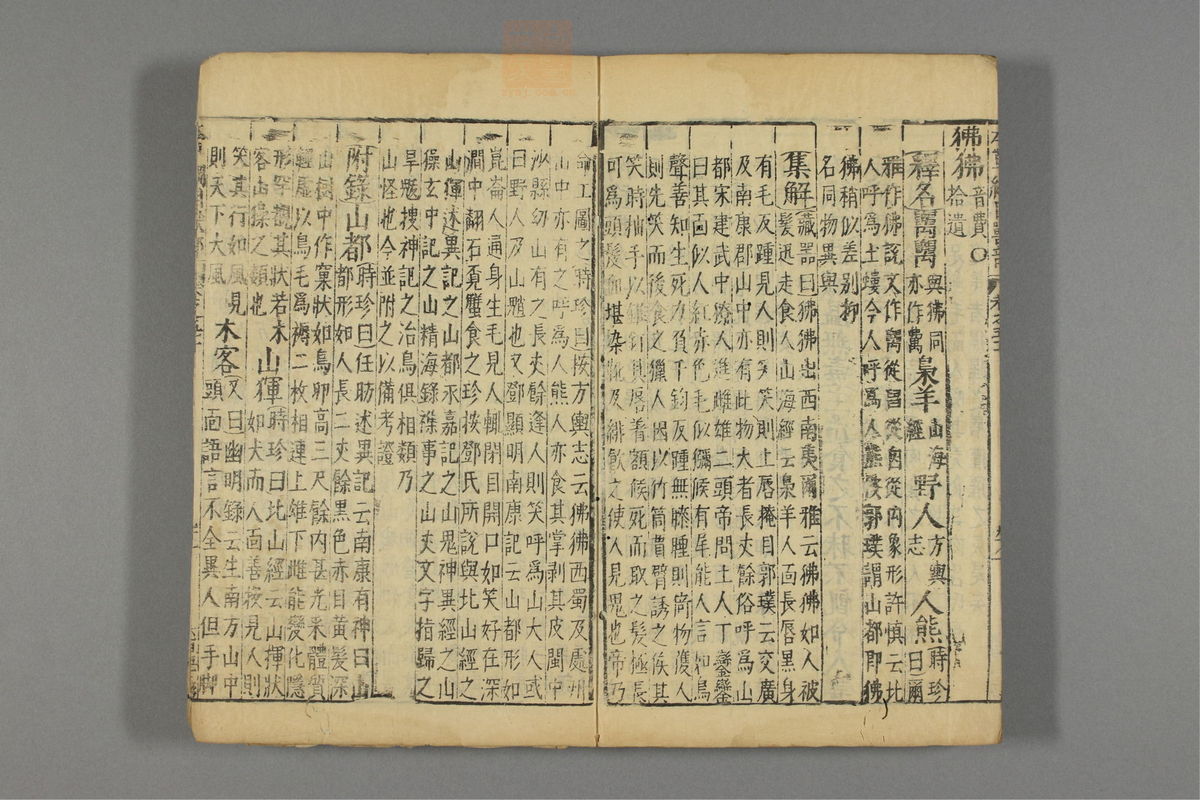 狒狒音費〇
拾遺
釋名䕫䕫與狒同亦作萬梟羊山海經野人方輿志人熊時珍曰爾
雅作狒說文作䕫從𦥑從囟從内象形許慎云北
人呼爲土螻今人呼爲人熊按郭璞謂山都即狒
狒稍似差别抑
名同物異與
集解藏器曰狒狒出西南夷爾雅云狒狒如人被
髮迅走食人山海經云梟羊人靣長唇黑身
有毛反踵見人則笑笑則上唇掩目郭璞云交廣
及南康郡山中亦有此物大者長丈餘俗呼爲山
都宋建武中獠人進雌雄二頭帝問土人丁鑾鑾
曰其靣似人紅赤色毛似獼猴有尾能人言如鳥
聲善知生死力負千鈞反踵無膝睡則倚物獲人
則先笑而後食之獵人因以竹筒貫臂誘之俟其
笑時抽手以錐釘其唇着額候死而取之髮極長
可爲頭髲血堪染靴及緋飲之使人見鬼也帝乃
命工圖之時珍曰按方輿志云狒狒西蜀及處州
山中亦有之呼爲人熊人亦食其掌剥其皮閩中
沙縣幼山有之長丈餘逢人則笑呼爲山大人或
曰野人及山魈也又鄧顯明南康記云山都形如
崑崙人通身生毛見人輒閉目開口如笑好在深
澗中翻石覓蟹食之珍按鄧氏所說與北山經之
山𤟤述異記之山都永嘉記之山鬼神異經之山
㺐玄中記之山精海錄雜事之山丈文字指歸之
旱魃搜神記之治鳥俱相類乃
山怪也今並附之以備考證
附錄山都時珍曰任昉述異記云南康有神曰山
都形如人長二丈餘黑色赤目黃髮深
山樹中作窠狀如鳥卵高三尺餘内甚光采體質
輕虛以鳥毛爲褥二枚相連上雄下雌能變化隱
形罕覩其狀若木
客山㺐之類也山𤟤時珍曰北山經云山𤟤狀
如犬而人靣善投見人則
笑其行如風見
則天下大風木客又曰幽明錄云生南方山中
頭靣語言不全異人但手脚